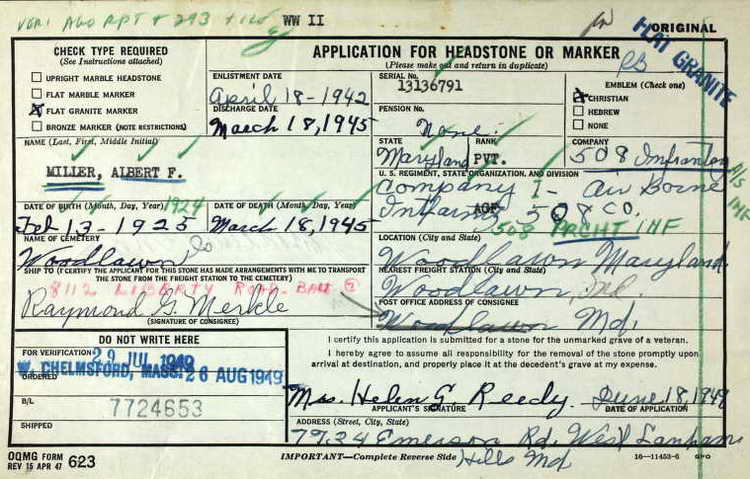 VERI AGO RPT + 293
WW II
ORIGINAL
FLAT GRANITE
CHECK TYPE REQUIRED
(See Instructions attached)
UPRIGHT MARBLE HEADSTONE
FLAT MARBLE MARKER
X FLAT GRANITE MARKER
BRONZE MARKER (NOTE RESTRICTIONS)
APPLICATION FOR HEADSTONE OR MARKER
(Please make out and return in duplicate)
ENLISTMENT DATE
April 18-1942
DISCHARGE DATE
March 18, 1945
SERIAL No.
13136791
PENSION No.
None
EMBLEM (Check one)
X CHRISTIAN
HEBREW
NONE
NAME (Last, First, Middle Initial)
MILLER, ALBERT F.
STATE
Maryland
RANK
PVT.
COMPANY
508 Infrantry
U. S. REGIMENT, STATE ORGANIZATION, AND DIVISION
Company I - Air Borne
Infantry 508 CO.
508 PRCHT INF
A/S
INF
DATE OF BIRTH (Month, Day, Year)
1924
Feb 13-1925
DATE OF DEATH (Month, Day, Year)
March 18, 1945
NAME OF CEMETERY
Woodlawn
LOCATION (City and State)
Woodlawn Maryland
SHIP TO (I CERTIFY THE APPLICANT FOR THIS STONE HAS MADE ARRANGEMENTS WITH ME TO TRANSPORT
THE STONE FROM THE FREIGHT STATION TO THE CEMETERY)
8112 LIBERTY ROAD-BALT
Raymond G. Merkle
(SIGNATURE OF CONSIGNEE)
NEAREST FREIGHT STATION (City and State)
Woodlawn, Md.
POST OFFICE ADDRESS OF CONSIGNEE
Woodlawn Md.
DO NOT WRITE HERE
FOR VERIFICATION
29 JUL 1949
ORDERED
W. CHELMSFORD, MASS. 26 AUG 1949
B/L
7724653
I certify this application is submitted for a stone for the unmarked grave of a veteran.
I hereby agree to assume all responsibility for the removal of the stone promptly upon
arrival at destination, and properly place it at the decedent's grave at my expense.
Mrs. Helen G. Reedy. June 18, 1949
APPLICANT'S SIGNATURE
DATE OF APPLICATION
ADDRESS (Street, City, State)
7724 Emerson Rd, West Lanham
Hills Md
OQMG FORM
REV 15 APR 47
623
IMPORTANT—Complete Reverse Side
16—11453-6 GPO